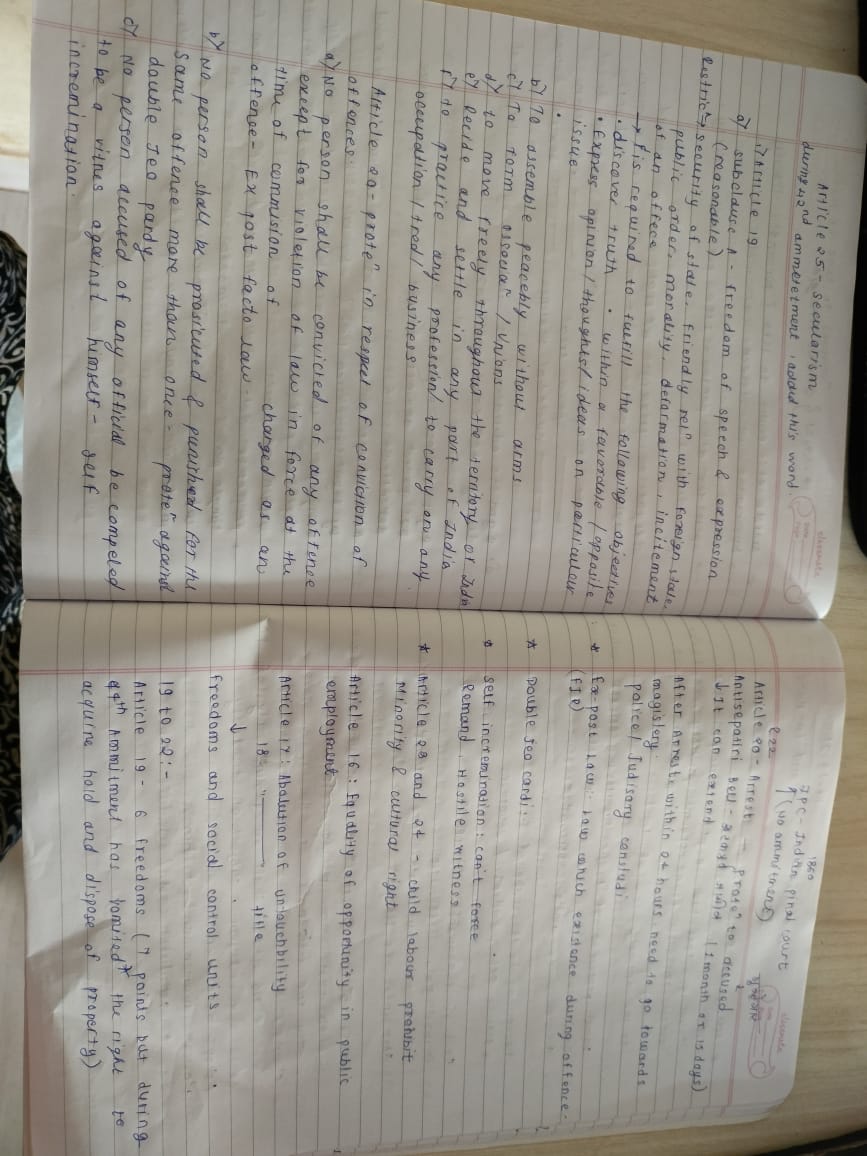 Article 25 - secularism
during 42nd ammeretment, added this word.
i) Article 19
a) subclause A - freedom of speech & expression
(reasonable)
Restric^n → security of state, friendly rel^n with foreign state,
public order, morality, deformation, incitement
of an offece
→ F is required to fulfill the following objectives
• discover truth • within a favorable / opposite
• Express opinion / thoughts / ideas on particulour
issue
•
b) To assemble peacebly without arms
c) To form associa^n / Unions
d) to move freely throughout the territory of India
e) Recide and settle in any part of India
f) to practice any profession / to carry on any
occupation / tred / business
Article 20 - prote^n in respect of conviction of
offences.
a) No person shall be convicted of any offence
except for violation of law in force at the
time of commision of charged as an
offence - Ex post facto law.
b) No person shall be prosicuted & punished for the
same offence more than once - prote^n against
double Jeo pardy
c) No person accused of any official be compeled
to be a vitnes against himself - self
incremination.
1860
IPC - Indian pinal court
(No ammitment)
& 22
Article 20 - Arrest → prote^n to accused
(1 month or 15 days)
It can extend
After Arrest within 24 hours need to go towards
magistery
police / Judisary
* Ex-post Law: law which existence during offence.
(FIR)
* Double Jeo cardi:
* self incremination: can't force
Remand, Hostile witness
* Article 23 and 24 - child labour prohibit
Minority & cultural right
Article 16: Equality of opportunity in public
employment
Article 17: Abolution of untouchbility
18: —"— title
↓
freedoms and social control units
19 to 22:-
Article 19 - 6 freedoms (7 points but during
44th Ammitment has "omited" the right to
acquire hold and dispose of property)